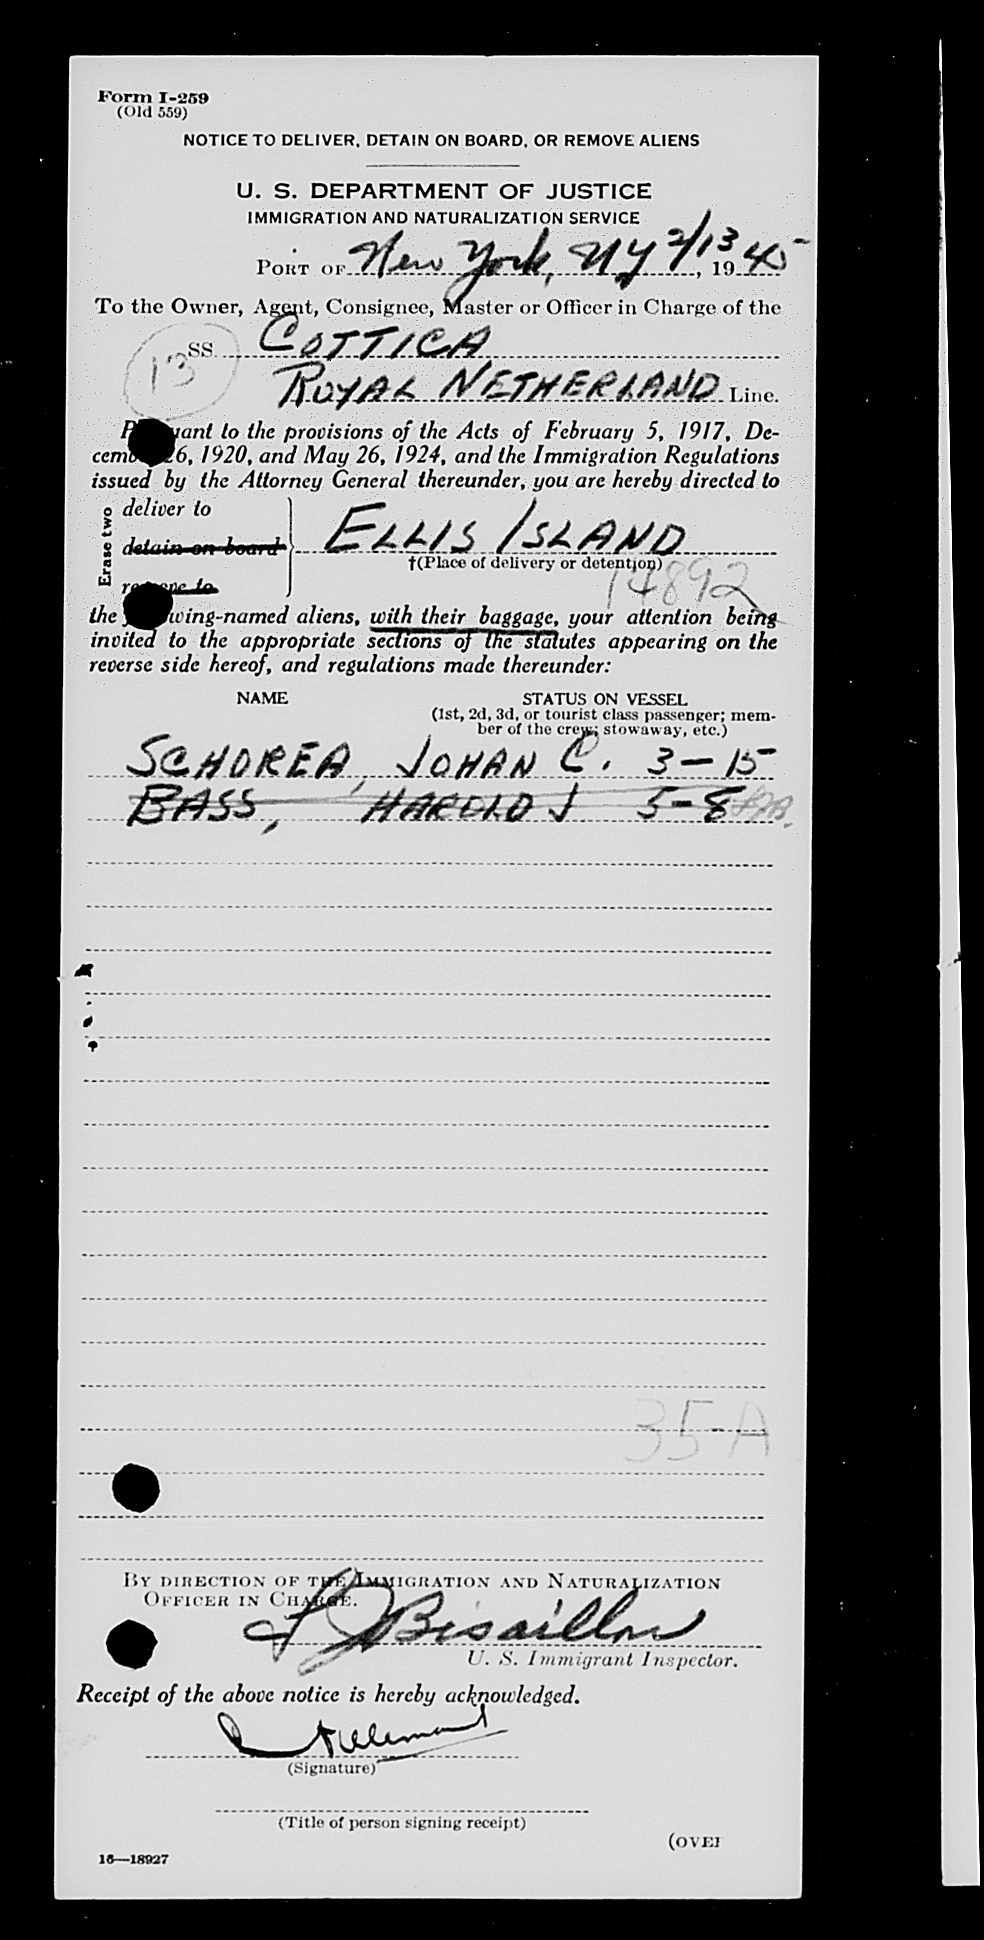 Form I-259
(Old 559)
NOTICE TO DELIVER, DETAIN ON BOARD, OR REMOVE ALIENS
U. S. DEPARTMENT OF JUSTICE
IMMIGRATION AND NATURALIZATION SERVICE
PORT OF New York, NY 2/13, 1945
To the Owner, Agent, Consignee, Master or Officer in Charge of the
13 SS COTTICA
ROYAL NETHERLAND Line.
to the provisions of the Acts of February 5, 1917, De-
6, 1920, and May 26, 1924, and the Immigration Regulations
issued by the Attorney General thereunder, you are hereby directed to
Erase two
deliver to
detain on board
ELLIS ISLAND
†(Place of delivery or detention)
14892
the aliens, with their baggage, your attention being
invited to the appropriate sections of the statutes appearing on the
reverse side hereof, and regulations made thereunder:
NAME STATUS ON VESSEL
(1st, 2d, 3d, or tourist class passenger; mem-
ber of the crew; stowaway, etc.)
SCHOREA, JOHAN C. 3-15
BASS, HAROLD J 5-8
35-A
BY DIRECTION OF THE IMMIGRATION AND NATURALIZATION
OFFICER IN CHARGE.
Bisaillon
U. S. Immigrant Inspector.
Receipt of the above notice is hereby acknowledged.
(Signature)
(Title of person signing receipt)
(OVER
16—18927